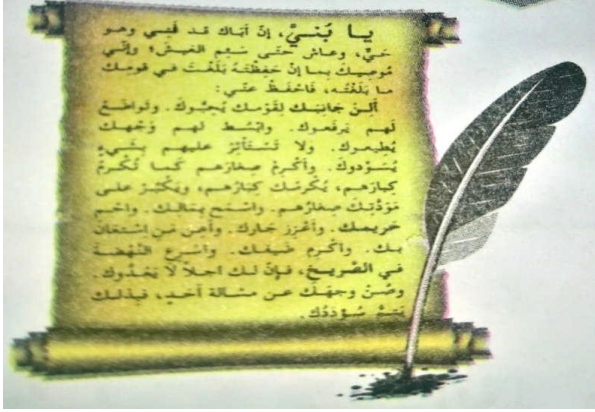 يا بُنيَّ، إنّ أباك قد فَنِي وهو
حَيٌّ، وعاش حتى سَئِم العَيشَ؛ وإنّي
مُوصِيكَ بما إنْ حَفِظْتَهُ بَلَغْتَ في قومِكَ
ما بَلَغْتُه، فَاحْفَظْ عنّي:
ألِنْ جانِبَك لقَوْمك يُحِبُّوكَ. وتَواضَعْ
لَهم يَرفَعوك. وابْسُط لهم وَجْهك
يُطِيعوك. ولا تَسْتَأْثِرْ عليهم بِشَيءٍ
يُسَوِّدوك. وأكْرِمْ صِغارَهم كما تُكْرِمُ
كِبارَهم، يُكْرِمْك كِبَارُهم، ويَكْبُرْ على
مَوَدَّتِكَ صِغارُهم. واسْمَح بِمَالِك. واحْمِ
حَريمك. وأعْزِز جارَك. وأعِن مَنِ اسْتَعَانَ
بك. وأكْرِم ضَيفَك. وأسْرِع النَّهْضَةَ
في الصَّرِيخ، فإنّ لك أجَلاً لا يَعْدُوك.
وصُنْ وجهَك عن مسْألة أحدٍ، فبذلك
يَتِمُّ سُؤدَدُك.